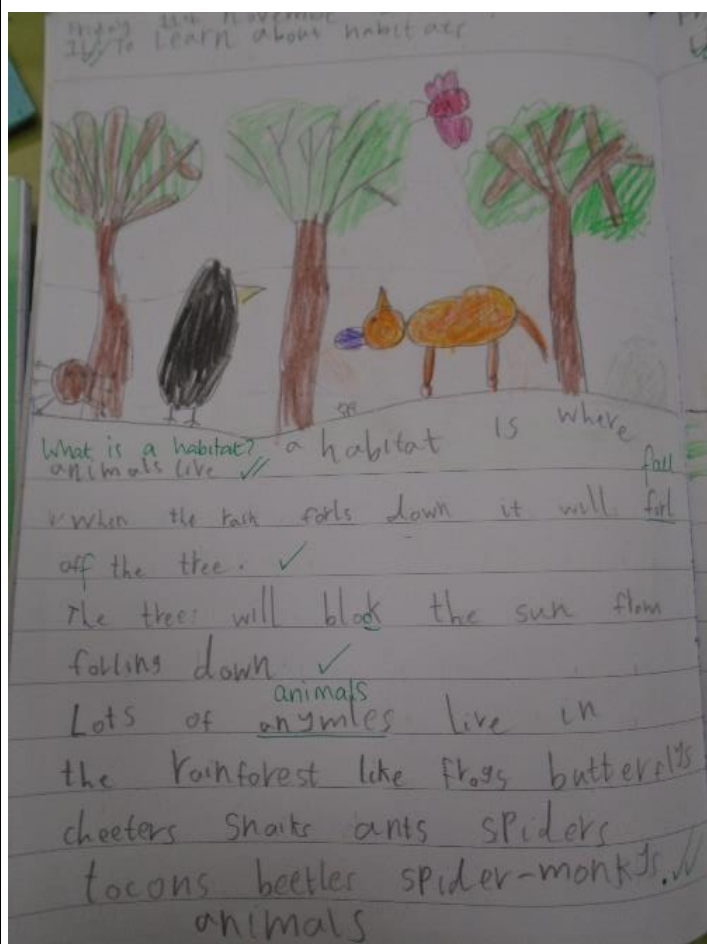 Friday 11th November
To Learn about habitats
What is a habitat? a habitat is where
animals live
fall
When the rain forls down it will forl
off the tree.
The tree will block the sun from
folling down
animals
Lots of anymles live in
the rainforest like frogs butterflys
cheeters snaiks ants spiders
tocons beetles spider-monkys.
animals